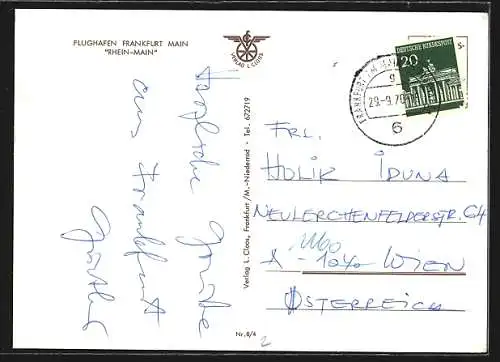 FLUGHAFEN FRANKFURT MAIN
"RHEIN-MAIN"
VERLAG L. CLOOS
Herzliche Grüße
aus Frankfurt
Verlag L. Cloos, Frankfurt/M.-Niederrad · Tel. 672719
Nr. 8/6
DEUTSCHE BUNDESPOST
20
FRANKFURT AM MAIN
9
29-9.70
6
FRL.
HOLIK IDUNA
NEULERCHENFELDERSTR. 64
1160
A - 1040 WIEN
ÖSTERREICH
2